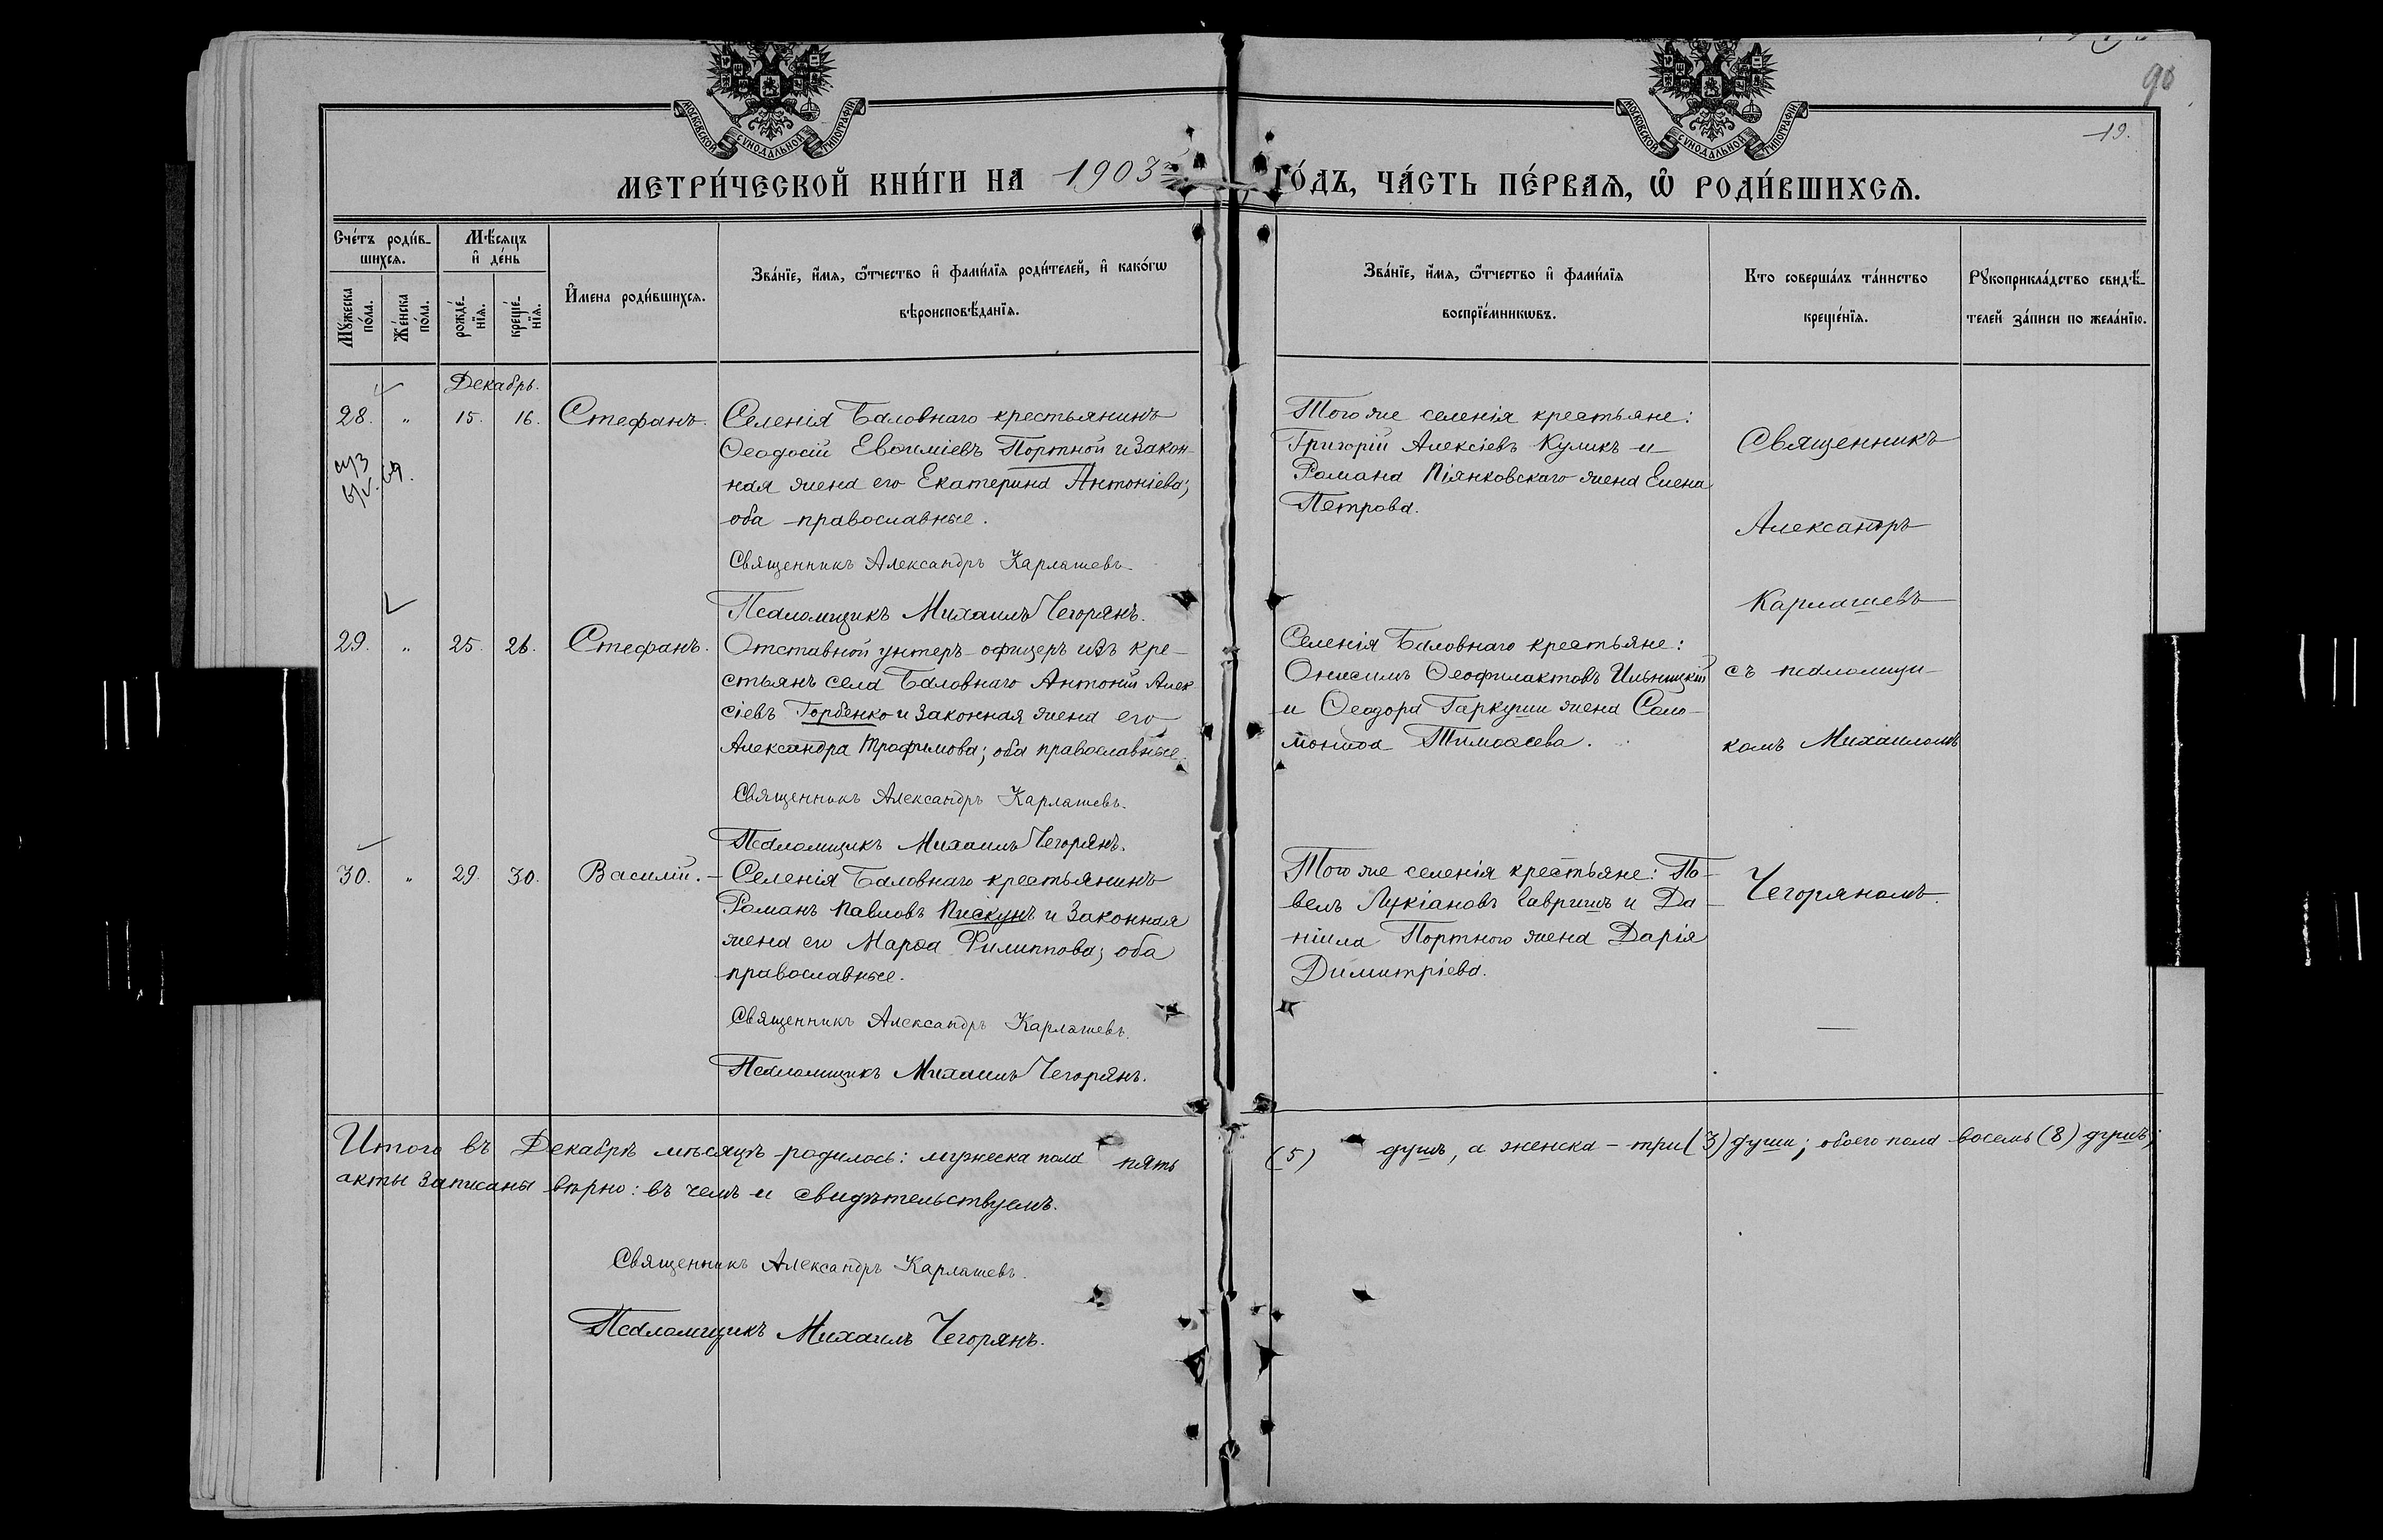 МОСКОВСКОЙ СѴНОДАЛЬНОЙ ТИПОГРАФІИ
МОСКОВСКОЙ СѴНОДАЛЬНОЙ ТИПОГРАФІИ
90
19.
МЕТРИ́ЧЕСКОЙ КНИ́ГИ НА 1903 ГО́ДЪ, ЧА́СТЬ ПЕ́РВАѦ, Ѿ РОДИ́ВШИХСѦ.
Сче́тъ роди́в-
шихсѧ.
Мꙋ́жеска по́ла.
Же́нска по́ла.
Мѣ́сяцъ
и҆ де́нь
рожде́-
нїѧ.
креще́-
нїѧ.
И҆́мена роди́вшихсѧ.
Зва́нїе, и҆́мѧ, ѻ҆́тчество и҆ фами́лїѧ роди́телей, и҆ како́гѡ
вѣроисповѣ́данїѧ.
Зва́нїе, и҆́мѧ, ѻ҆́тчество и҆ фами́лїѧ
воспрїе́мникѡвъ.
Кто соверша́лъ та́инство
креще́нїѧ.
Рꙋкоприкла́дство свидѣ́-
телей за́писи по жела́нїю.
Декабрь.
28. " 15. 16. Стефанъ.
Селенія Баловнаго крестьянинъ
Ѳеодосій Евѳиміевъ Портной и закон-
ная жена его Екатерина Антоніева;
оба православные.
Священникъ Александръ Карлашевъ.
Псаломщикъ Михаилъ Чегорянъ.
Того же селенія крестьяне:
Григорій Алексіевъ Куликъ и
Романа Піянковскаго жена Елена
Петрова.
Священникъ
Александръ
Карлашевъ
съ псаломщи-
комъ Михаиломъ
Чегоряномъ.
29. " 25. 26. Стефанъ.
Отставной унтеръ-офицеръ изъ кре-
стьянъ села Баловнаго Антоній Алек
сіевъ Горбенко и законная жена его
Александра Трофимова; оба православные.
Священникъ Александръ Карлашевъ.
Псаломщикъ Михаилъ Чегорянъ.
Селенія Баловнаго крестьяне:
Онисимъ Ѳеофилактовъ Ильницкій
и Ѳеодора Гаркуши жена Соло-
монида Тимоѳеева.
30. " 29. 30. Василій.
Селенія Баловнаго крестьянинъ
Романъ Павловъ Пискунъ и законная
жена его Марѳа Филиппова; оба
православные.
Священникъ Александръ Карлашевъ.
Псаломщикъ Михаилъ Чегорянъ.
Того же селенія крестьяне: Па-
велъ Лукіановъ Гавришъ и Да-
ніила Портного жена Дарія
Димитріева.
Итого въ Декабрѣ мѣсяцѣ родилось: мужеска пола пять (5) душъ, а женска - три (3) души; обоего пола восемь (8) душъ;
акты записаны вѣрно: въ чемъ и свидѣтельствуемъ.
Священникъ Александръ Карлашевъ.
Псаломщикъ Михаилъ Чегорянъ.